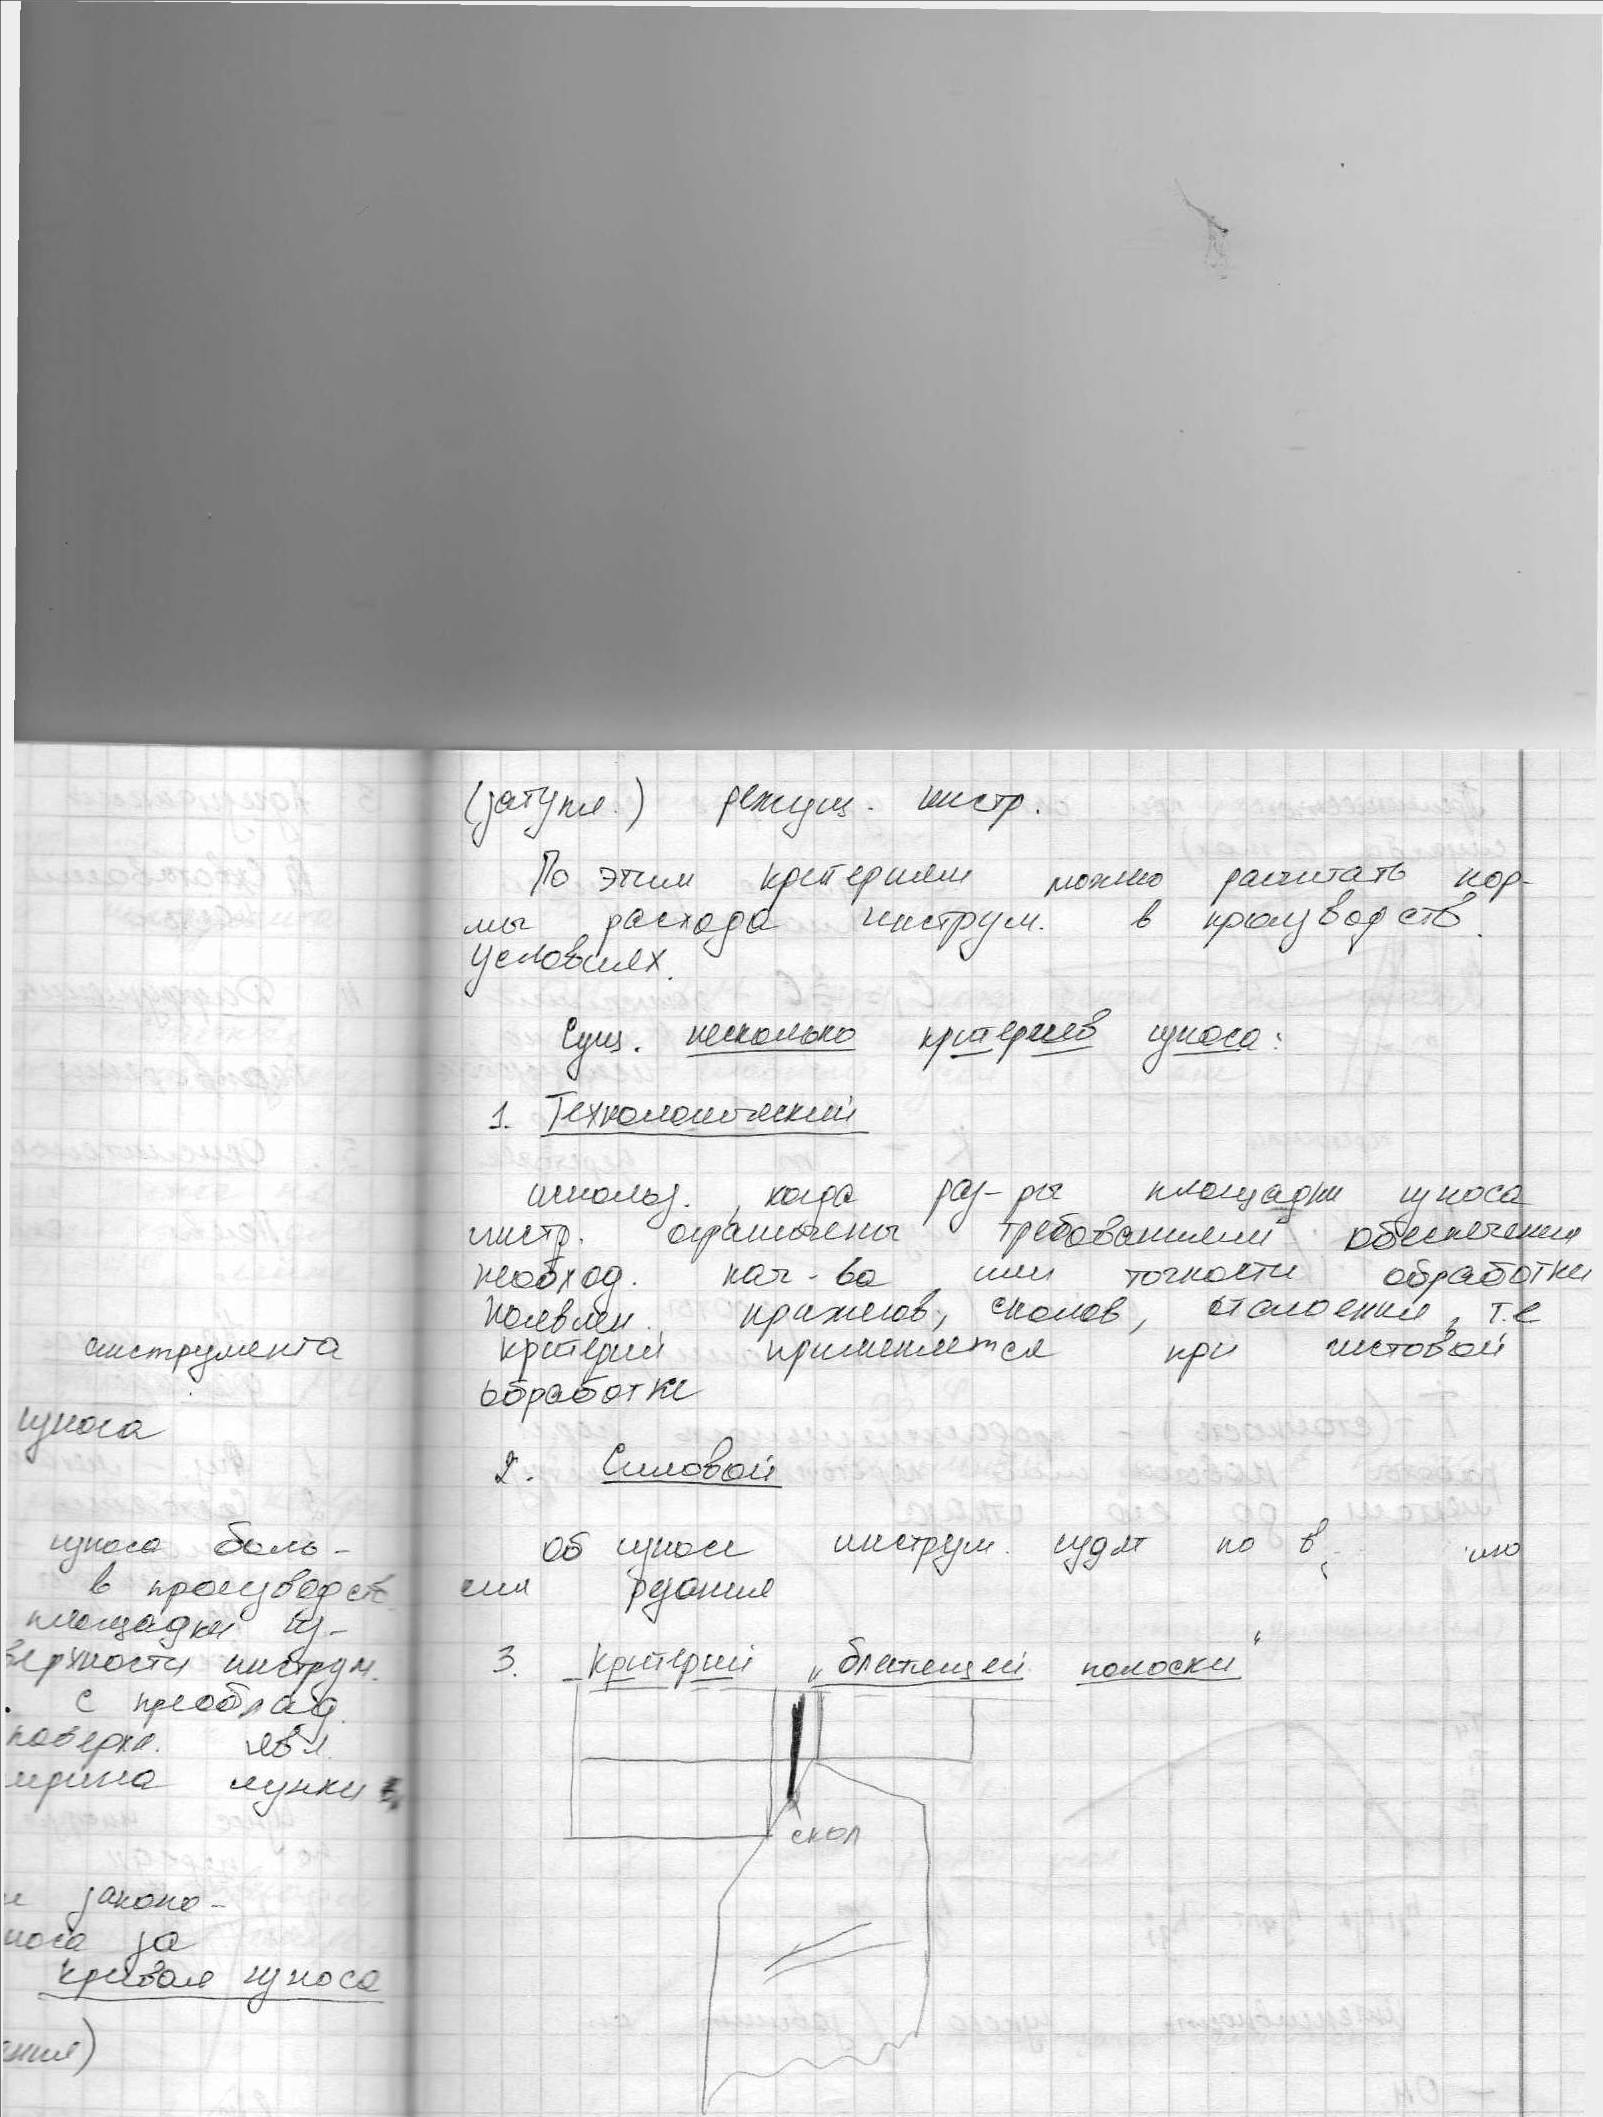 инструмента
износа
износа боль-
в производств.
площадки из-
верхности инструм.
с преоблад.
поверхн. явл.
ширина лунки
законо-
носа за
кривая износа
ения)
(затупл.) режущ. инстр.
По этим критериям можно расчитать нор-
мы расхода инструм. в производств.
условиях.
Сущ. несколько критериев износа:
1. Технологический
использ., когда раз-ры площадки износа
инстр. ограничены требованиями обеспечения
необход. кач-ва или точности обработки
появлен. прижегов, сколов, отслоений, т.е
критерий применяется при чистовой
обработке
2. Силовой
об износе инструм. судят по
сил резания
3. Критерий „блестящей полоски“
скол